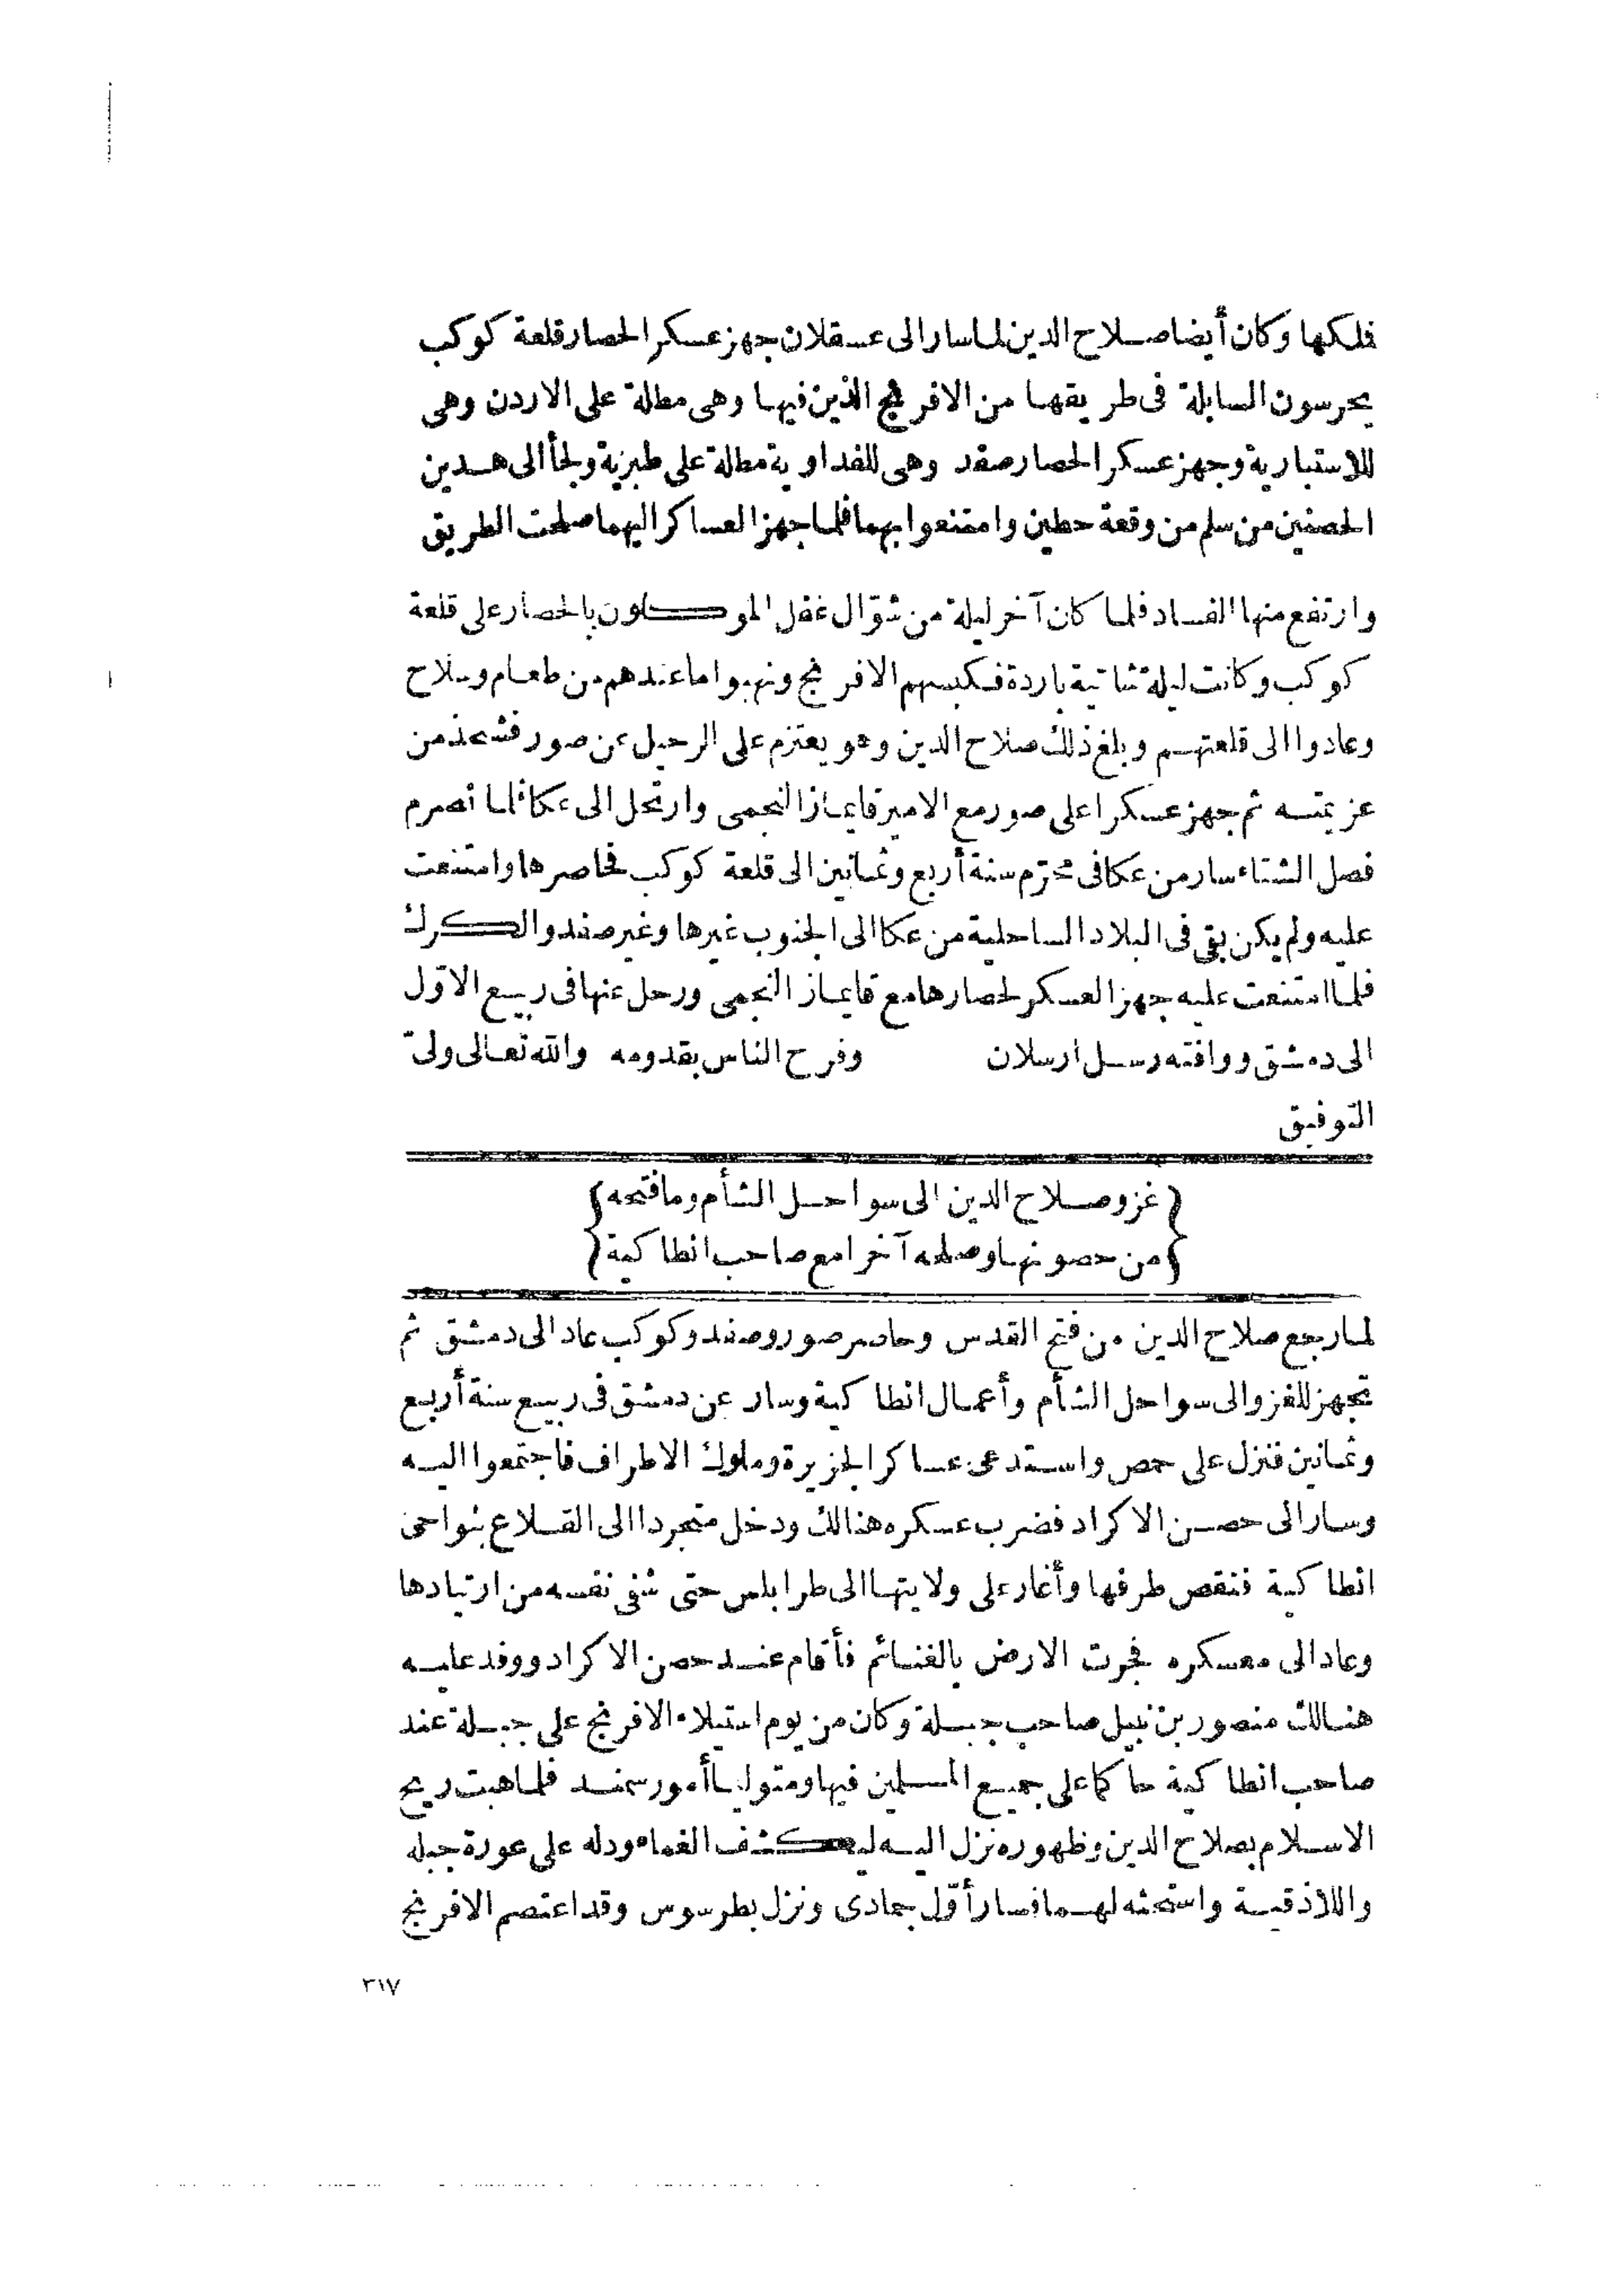 فلكها وكان أيضا صلاح الدين لما سار الى عسقلان جهز عسكرا لحصار قلعة كوكب
يحرسون السابلة فى طريقها من الافرنج الذين فيها وهى مطلة على الاردن وهى
للاستبارية وجهز عسكرا لحصار صفد وهى للفداوية مطلة على طبرية ولجأ الى هدين
الحصنين من سلم من وقعة حطين وامتنعوا بهما فلما جهز العساكر اليهما صلحت الطريق
وارتفع منها الفساد فلما كان آخر ليلة من شوّال غفل الموكلون بالحصار على قلعة
كوكب وكانت ليلة شاتية باردة فكبسهم الافرنج ونهبوا ما عندهم من طعام وسلاح
وعادوا الى قلعتهم وبلغ ذلك صلاح الدين وهو يعتزم على الرحيل عن صور فشحذ من
عزيمته ثم جهز عسكرا على صور مع الامير قايماز النجمى وارتحل الى عكا فلما انصرم
فصل الشتاء سار من عكا فى محرّم سنة أربع وثمانين الى قلعة كوكب فحاصرها وامتنعت
عليه ولم يكن بقى فى البلاد الساحلية من عكا الى الجنوب غيرها وغير صفد والكرك
فلما امتنعت عليه جهز العسكر لحصارها مع قايماز النجمى ورحل عنها فى ربيع الاوّل
الى دمشق ووافته رسل ارسلان وفرح الناس بقدومه والله تعالى ولىّ
التوفيق
{غزو صلاح الدين الى سواحل الشأم وما فتحه}
{من حصونها وصلحه آخرا مع صاحب انطاكية}
لما رجع صلاح الدين من فتح القدس وحاصر صور وصفد وكوكب عاد الى دمشق ثم
تجهز للغزو الى سواحل الشأم وأعمال انطاكية وسار عن دمشق فى ربيع سنة أربع
وثمانين فنزل على حمص واستدعى عساكر الجزيرة وملوك الاطراف فاجتمعوا اليه
وسار الى حصن الاكراد فضرب عسكره هنالك ودخل متجردا الى القلاع بنواحى
انطاكية فنقص طرفها وأغار على ولايتها الى طرابلس حتى شفى نفسه من ارتيادها
وعاد الى معسكره فجرت الارض بالغنائم فأقام عند حصن الاكراد ووفد عليه
هنالك منصور بن نبيل صاحب جبلة وكان من يوم استيلاء الافرنج على جبلة عند
صاحب انطاكية حاكما على جميع المسلمين فيها ومتوليا أمور سمند فلما هبت ريح
الاسلام بصلاح الدين وظهوره نزل اليه ليكشف الغماء ودله على عورة جبله
واللاذقية واستحثه لهما فسار أوّل جمادى ونزل بطرسوس وقد اعتصم الافرنج
٣١٧